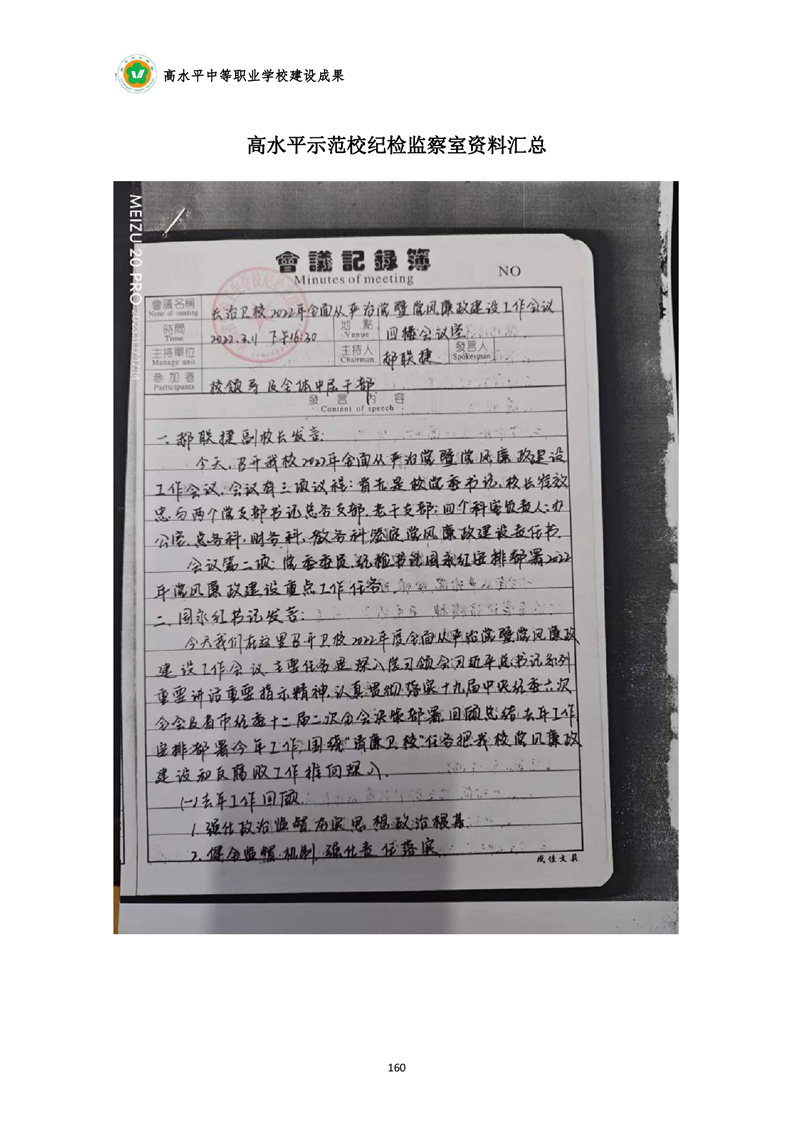 高水平中等职业学校建设成果
高水平示范校纪检监察室资料汇总
MEIZU 20 PRO
會議記録簿
Minutes of meeting
NO
會議名稱
Name of meeting
长治卫校2022年全面从严治党暨党风廉政建设工作会议
時間
Time
2022.3.11 下午16:30
地點
Venue
四楼会议室
主持單位
Manage unit
主持人
Chairman
郝联捷
發言人
Spokesman
參加者
Participants
校领导及全体中层干部
發言内容
Content of speech
一、郝联捷副校长发言:
今天,召开我校2022年全面从严治党暨党风廉政建设
工作会议,会议有三项议程:首先是校党委书记、校长
忠与两个党支部书记总务支部、老干支部;四个科室负责人:办
公室、总务科、财务科、教务科签定党风廉政建设责任书.
会议第二项:党委委员、纪检书记国永红安排部署2022
年党风廉政建设重点工作任务.
二、国永红书记发言:
今天我们在这里召开卫校2022年度全面从严治党暨党风廉政
建设工作会议,主要任务是深入学习领会习近平总书记系列
重要讲话重要指示精神,认真贯彻落实十九届中央纪委六次
全会及省市纪委十二届二次全会决策部署,回顾总结去年工作,
安排部署今年工作,围绕"清廉卫校"任务把我校党风廉政
建设和反腐败工作推向深入.
(一)去年工作回顾
1.强化政治监督夯实思想政治根基.
2.健全监督机制,强化责任落实.
成佳文具
160